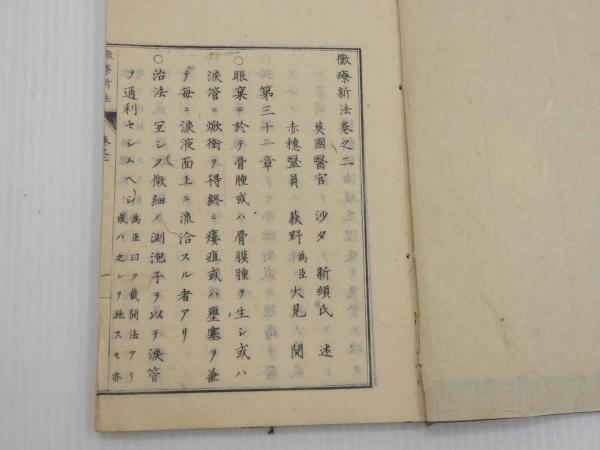 黴療新法卷之二
英國醫官 沙夕 新頓氏 述
赤穗醫員 荻野 為臣 大見 閲
第三十二章
○眼窠ニ於テ骨腫或ハ骨膜腫ヲ生シ或ハ
淚管ニ焮衝ヲ得終ニ瘻疽或ハ壅塞ヲ兼
テ毎ニ淚液面上ニ流洽スル者アリ
○治法宜シク微細ノ測泡子ヲ以テ淚管
ヲ通利セシムヘシ 為臣曰ク截開法アリ
或ハ之レヲ施スモ亦
黴療新法
卷之二
一